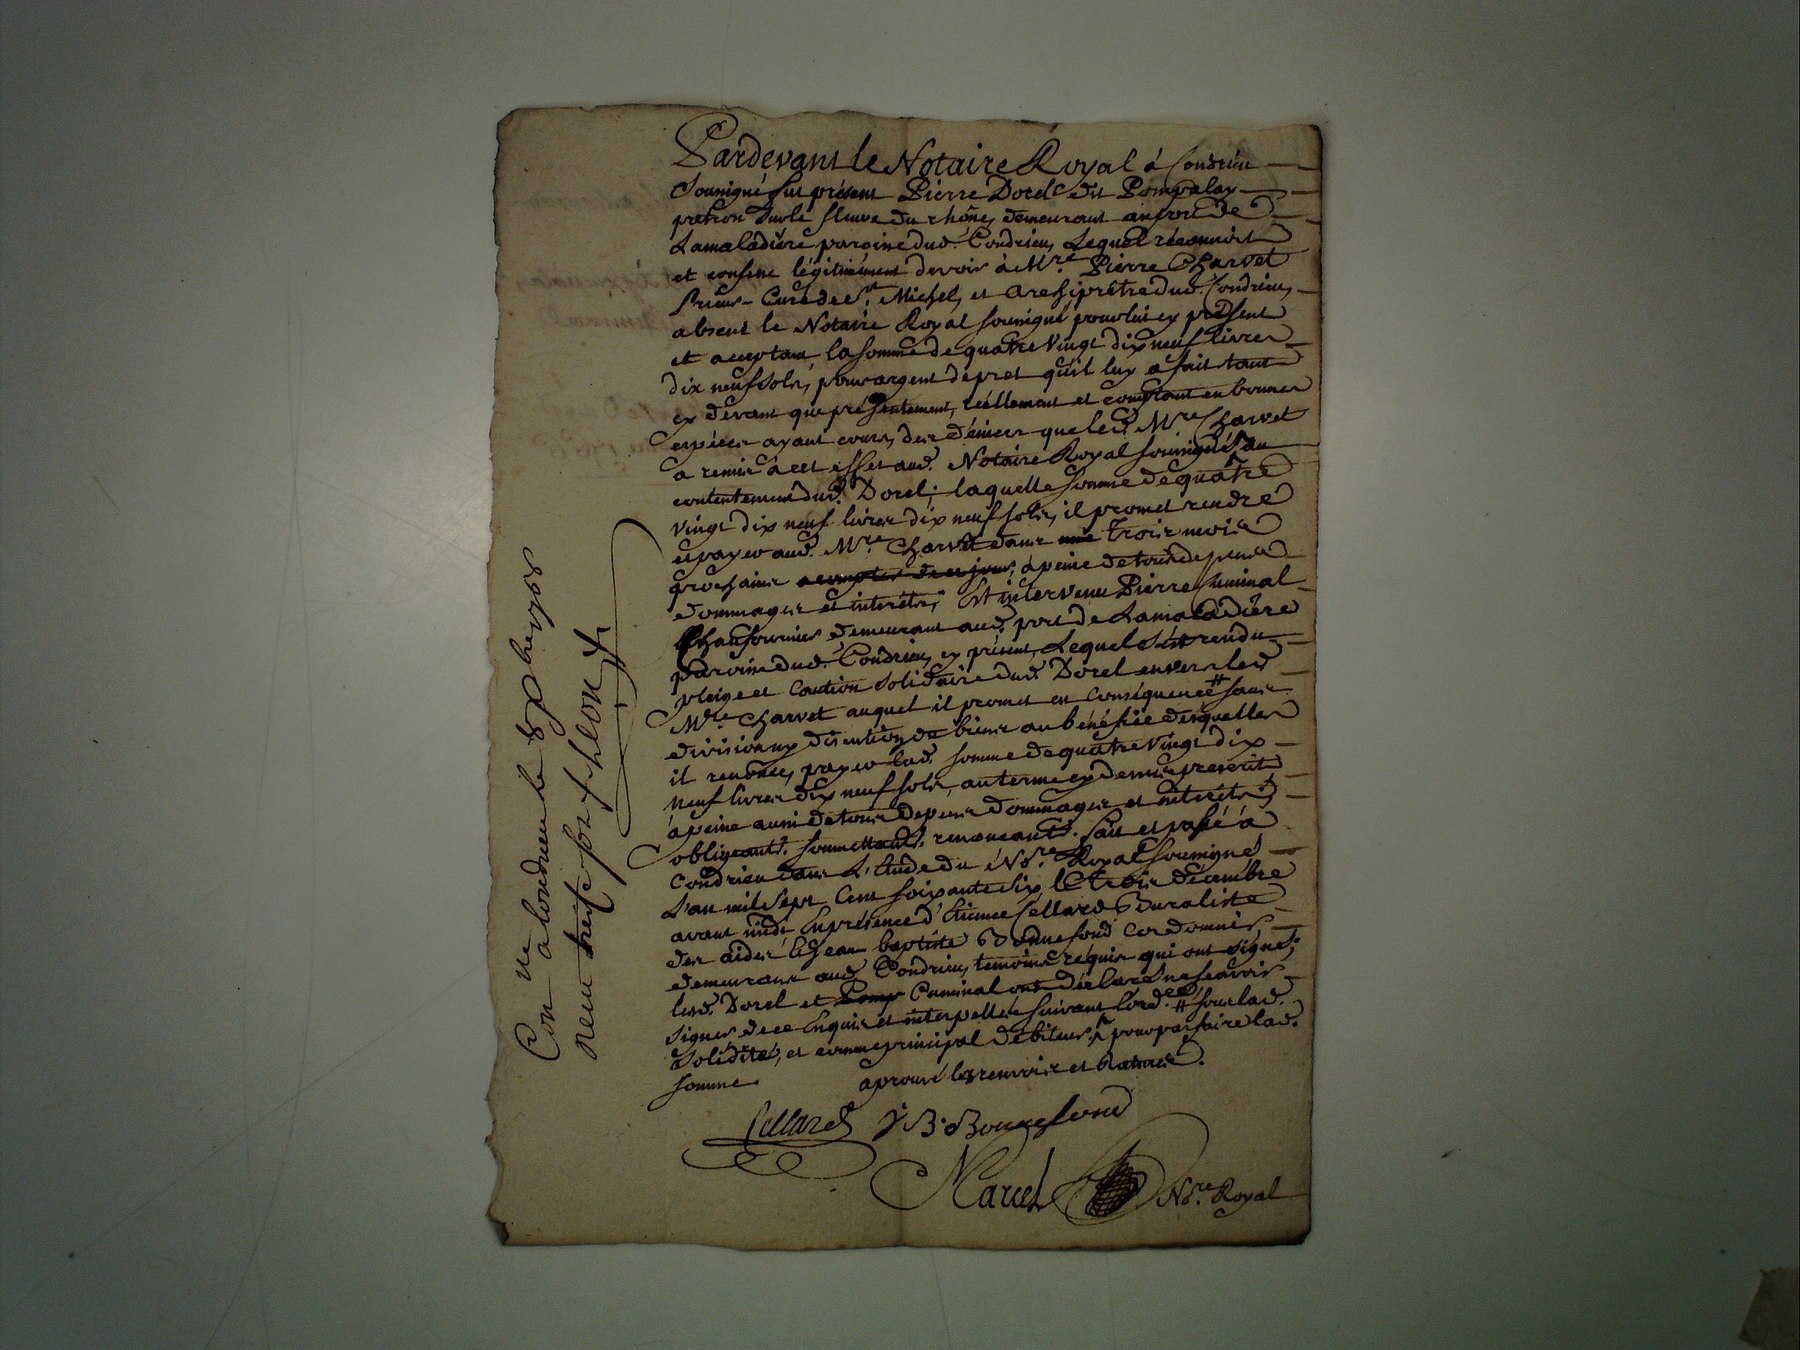 Pardevant le Notaire Royal á Condrieu
Soussigné fut présent Pierre Dorel dit Pompalay
patron sur le fleuve du rhône, demeurant au port de
Lamaladiere paroisse dud. Condrieu, Lequel réconnoit
et confesse légitimément devoir à Mre. Pierre Charvet
Prieur-Curé de St. Michel, et Archiprêtre dud. Condrieu,
absent le Notaire Royal soussigné pour lui cy présent
et acceptant, la somme de quatre vingt dix neuf livres
dix neuf sols, pour argent de pret qu'il luy a fait tant
cy devant que présentement, réellement et comptant en bonnes
espéces ayant cours, des déniers que led. Mre. Charvet
a remis à cet effet aud. Notaire Royal soussigné, au
contentement dud. Dorel; laquelle somme de quatre
vingt dix neuf livres dix neuf sols, il promet rendre
et payer aud. Mre. Charvet dans trois mois
prochains à peine de tous dépens
dommages et interêts; Est intervenu Pierre Cuminal
Chaufournier demeurant aud. port de Lamaladiere
paroisse dud. Condrieu, cy présent, Lequel s'est rendu
pleige et Caution Solidaire dud. Dorel envers led.
Mre. Charvet auquel il promet en conséquence # sans
division ny discution de biens au bénéfice desquelles
il renonce, payer lad. somme de quatre vingt dix
neuf livres dix neuf sols, au terme cy dessus prescrit
à peine aussi de tous dépens dommages et interêts;
obligeants. soumettants. renonceants. fait et passé á
Condrieu dans L'étude du Nore. Royal soussigné
L'an mil sept cent soixante six, le trois décembre
avant midi En présence d'Etienne Cellard Buraliste
des aides & Jean baptiste Bonnefond Cordonnier,
demeurans aud. Condrieu, temoins requis qui ont signé;
lesd. Dorel et Cuminal ont déclaré ne scavoir
signer de ce Enquis et interpellés suivant l'ord.ce # sous lad.
solidité, et comme principal débiteur. pour parfaire lad.
somme aprouvé les renvois et Ratures.
Cellard J B. Bonnefond
Marcel Nore. Royal
Con a Condrieu le 8 xbre 1766
Reçu treise sols